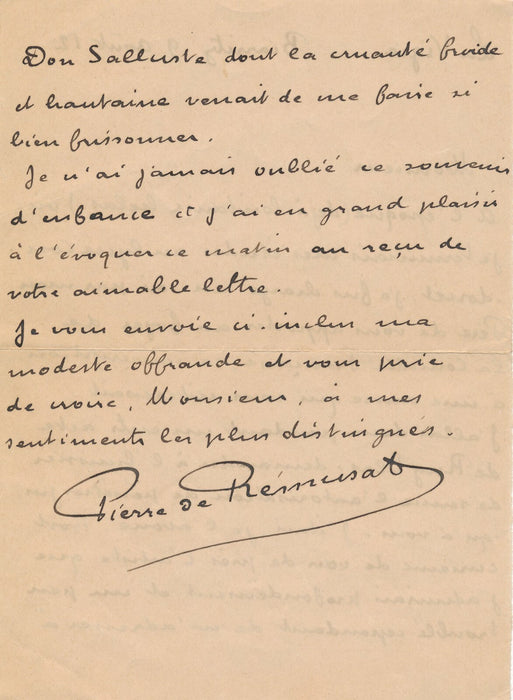 Don Salluste dont la cruauté froide
et hautaine venait de me faire si
bien frissonner.
Je n'ai jamais oublié ce souvenir
d'enfance et j'ai eu grand plaisir
à l'évoquer ce matin au reçu de
votre aimable lettre.
Je vous envoie ci-inclus ma
modeste offrande et vous prie
de croire, Monsieur, à mes
sentiments les plus distingués.
Pierre de Rémusat